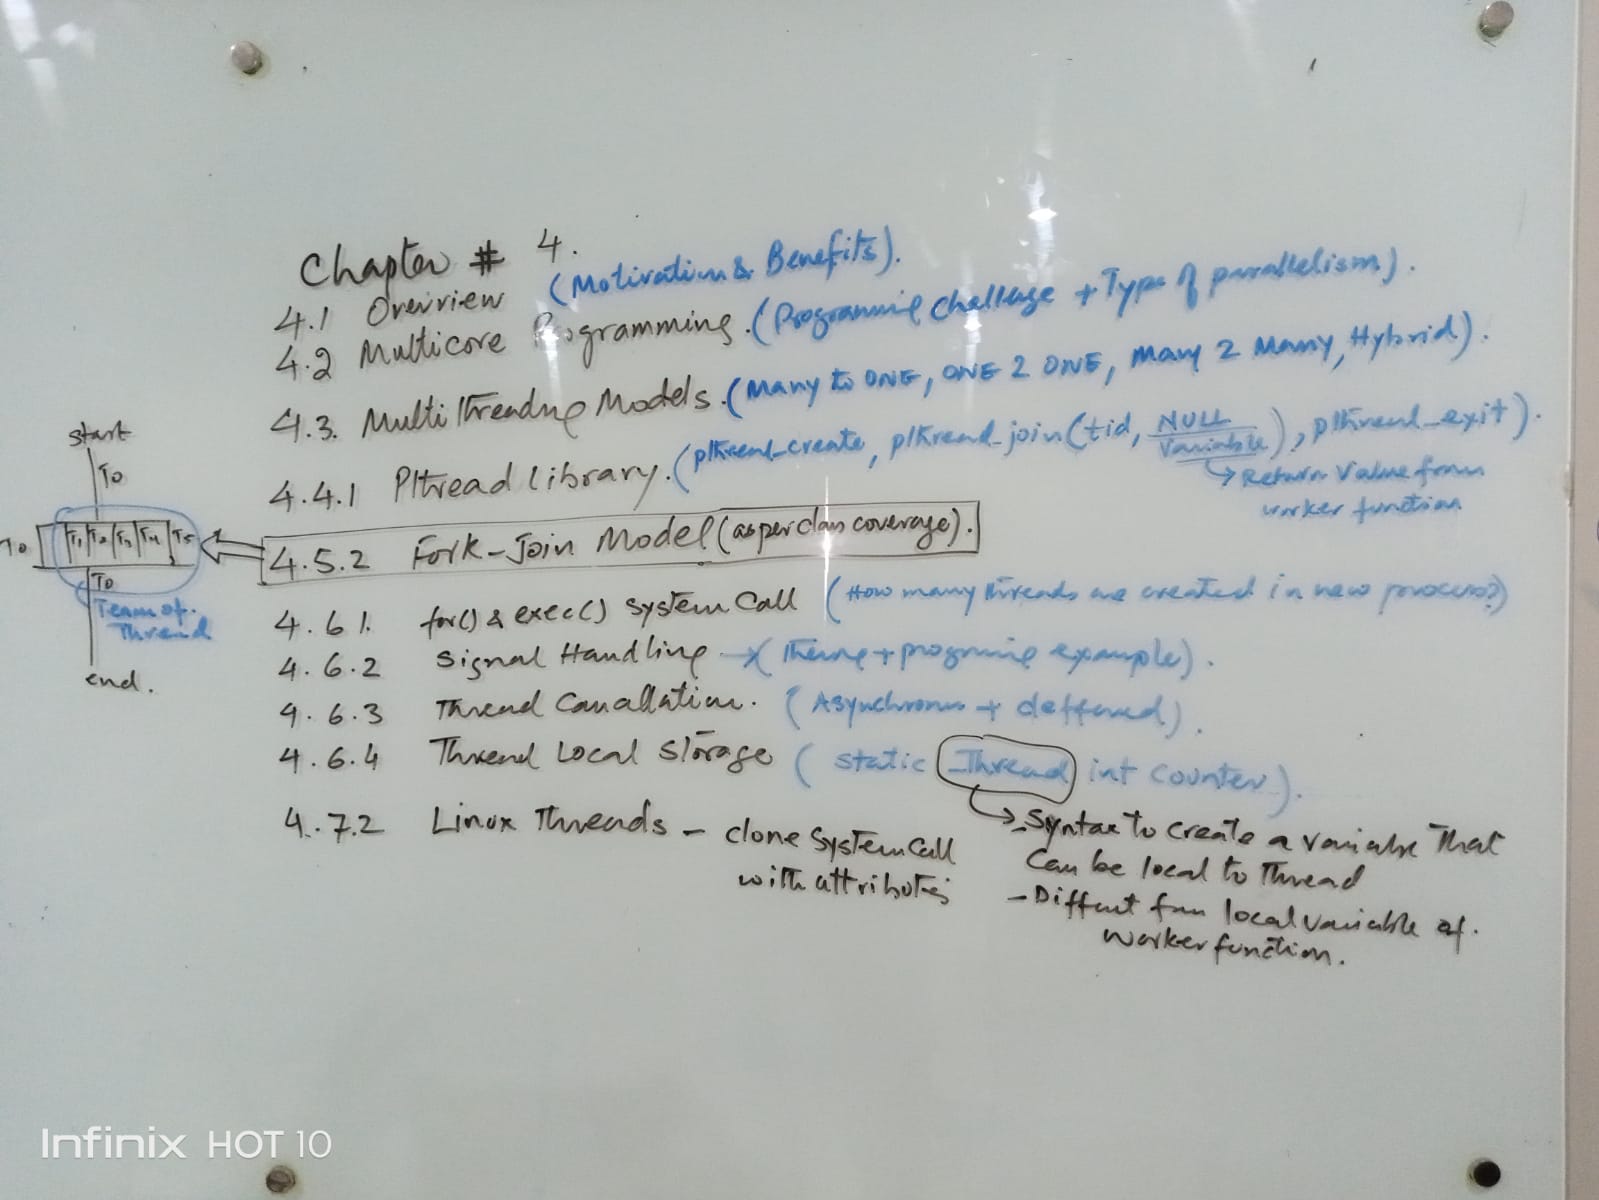 Chapter # 4.
4.1 Overview (Motivation & Benefits).
4.2 Multicore Programming. (Programmig Challage + Type of parallelism).
4.3. Multithreading Models. (Many to ONE, ONE 2 ONE, Many 2 Many, Hybrid).
4.4.1 Pthread Library. (pthread_create, pthread_join(tid, NULL
Variable), pthread_exit).
Return Value from
worker function
4.5.2 Fork-Join Model (as per class coverage).
4.6 1. for() & exec() system Call (How many threads are created in new process?)
4.6.2 Signal Handling → (Theory + programing example).
4.6.3 Thread Canallation. (Asynchronus + deffered).
4.6.4 Thread Local Storage (static _Thread int counter).
- Syntax to create a variable That
Can be local to Thread
- Diffent from local variable of
worker function.
4.7.2 Linux Threads - clone System Call
with attributes
start
To
To T1 T2 T3 T4 T5
To
Team of
Thread
end.
Infinix HOT 10